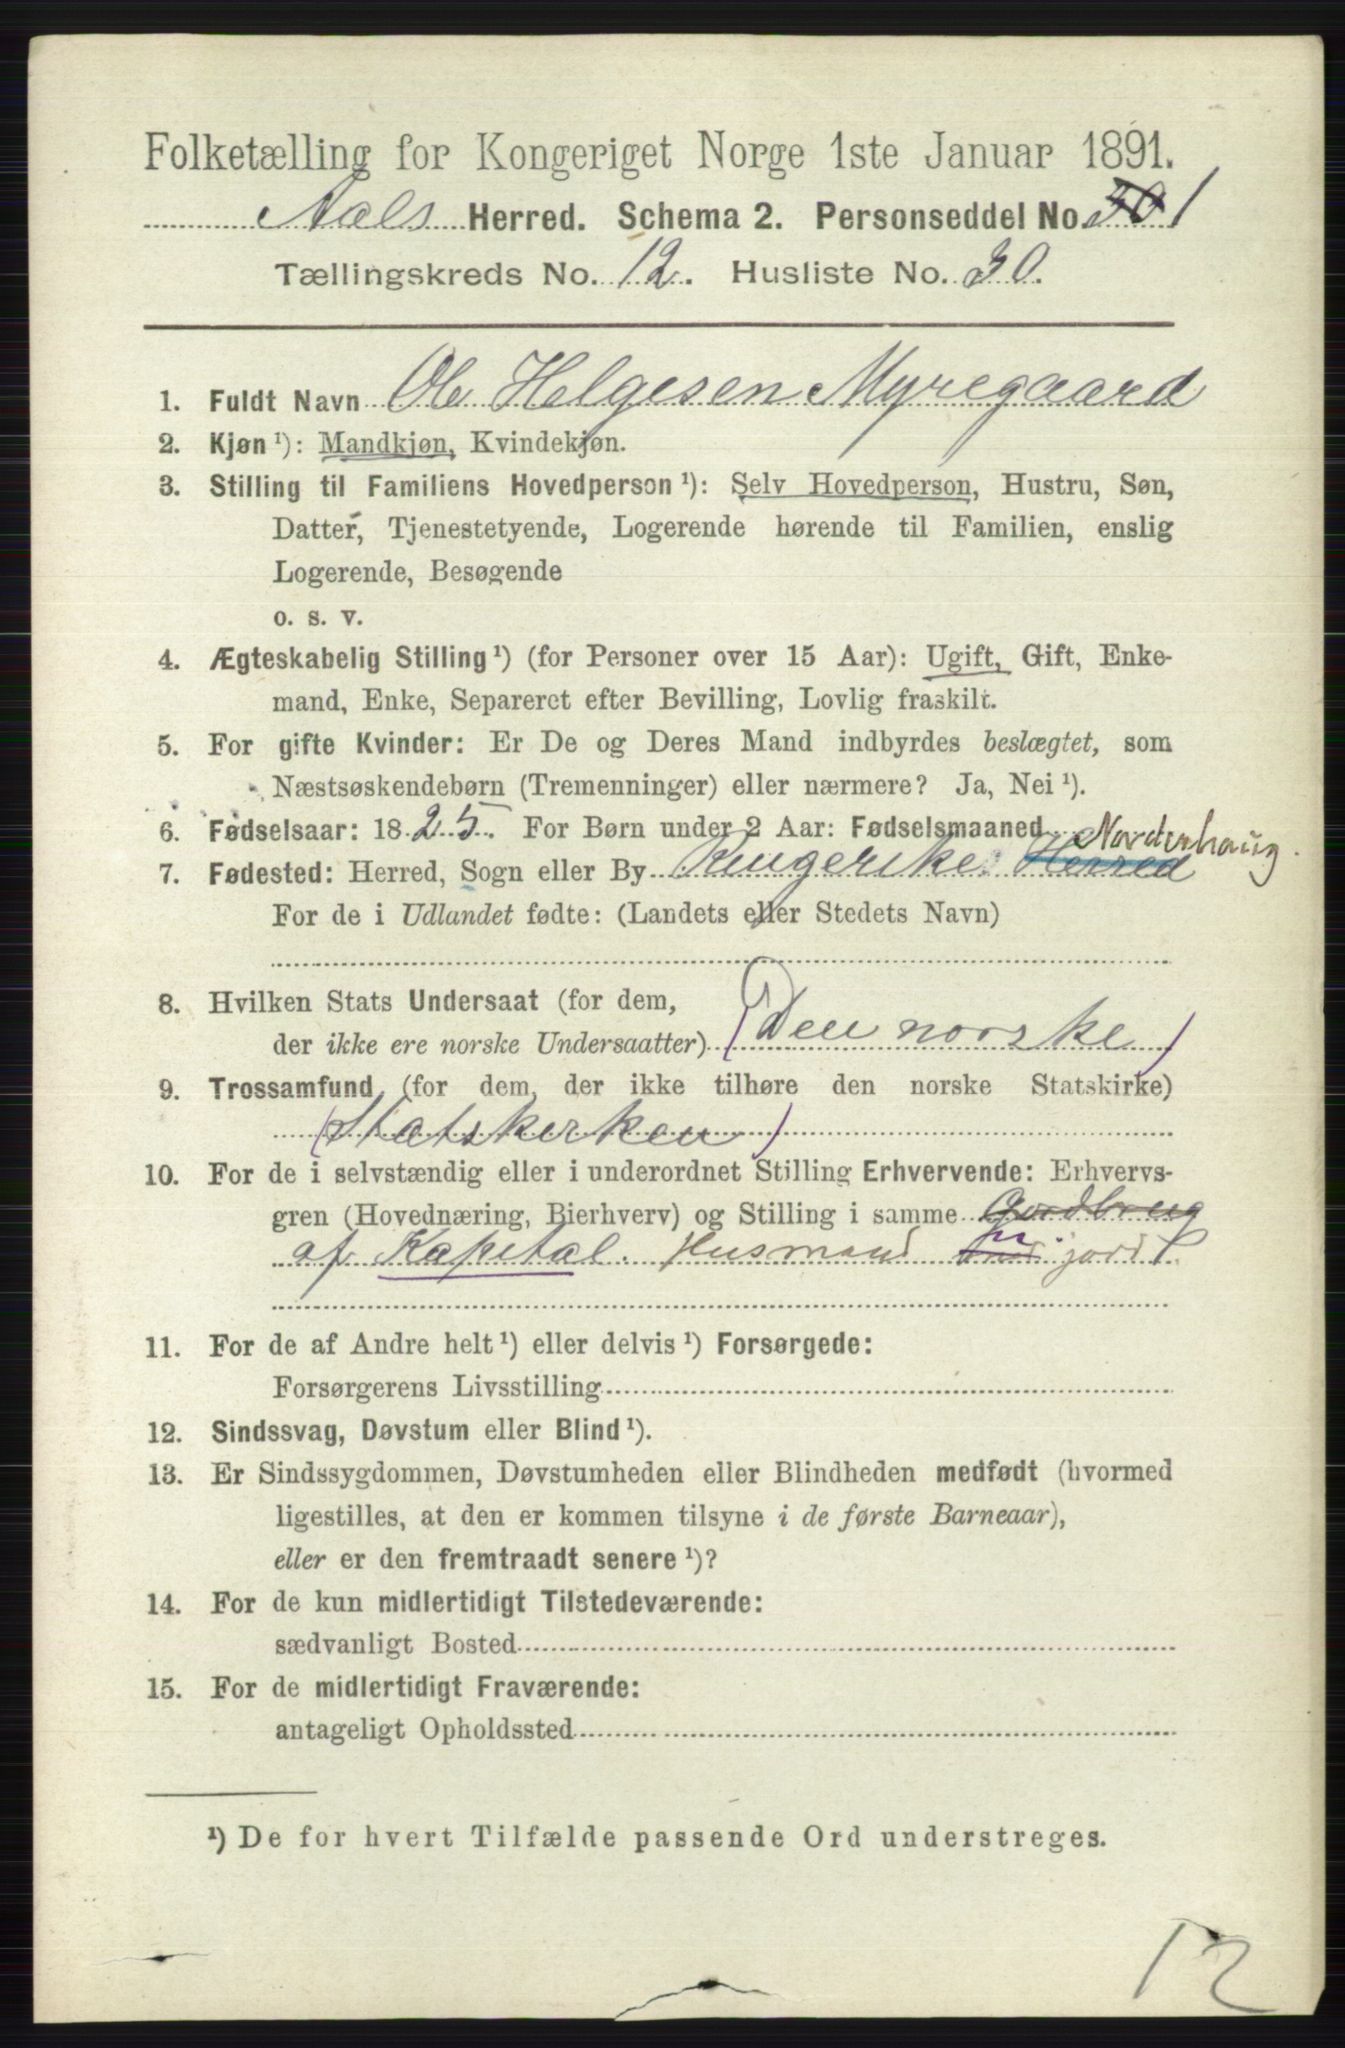 Folketælling for Kongeriget Norge 1ste Januar 1891.
Aals Herred. Schema 2. Personseddel No. 30 1
Tællingskreds No. 12. Husliste No. 30.
1. Fuldt Navn Ole Helgesen Myregaard
2. Kjøn ¹): Mandkjøn, Kvindekjøn.
3. Stilling til Familiens Hovedperson ¹): Selv Hovedperson, Hustru, Søn,
Datter, Tjenestetyende, Logerende hørende til Familien, enslig
Logerende, Besøgende
o. s. v.
4. Ægteskabelig Stilling ¹) (for Personer over 15 Aar): Ugift, Gift, Enke-
mand, Enke, Separeret efter Bevilling, Lovlig fraskilt.
5. For gifte Kvinder: Er De og Deres Mand indbyrdes beslægtet, som
Næstsøskendebørn (Tremenninger) eller nærmere? Ja, Nei ¹).
6. Fødselsaar: 1825. For Børn under 2 Aar: Fødselsmaaned
Norderhaug.
7. Fødested: Herred, Sogn eller By Ringerike Herred
For de i Udlandet fødte: (Landets eller Stedets Navn)
8. Hvilken Stats Undersaat (for dem,
der ikke ere norske Undersaatter) (Den norske)
9. Trossamfund (for dem, der ikke tilhøre den norske Statskirke)
(Statskirken)
10. For de i selvstændig eller i underordnet Stilling Erhvervende: Erhvervs-
gren (Hovednæring, Bierhverv) og Stilling i samme Gardbrug
af Kapital. Husmand med jord
11. For de af Andre helt ¹) eller delvis ¹) Forsørgede:
Forsørgerens Livsstilling
12. Sindssvag, Døvstum eller Blind ¹).
13. Er Sindssygdommen, Døvstumheden eller Blindheden medfødt (hvormed
ligestilles, at den er kommen tilsyne i de første Barneaar),
eller er den fremtraadt senere ¹)?
14. For de kun midlertidigt Tilstedeværende:
sædvanligt Bosted
15. For de midlertidigt Fraværende:
antageligt Opholdssted
¹) De for hvert Tilfælde passende Ord understreges.
12